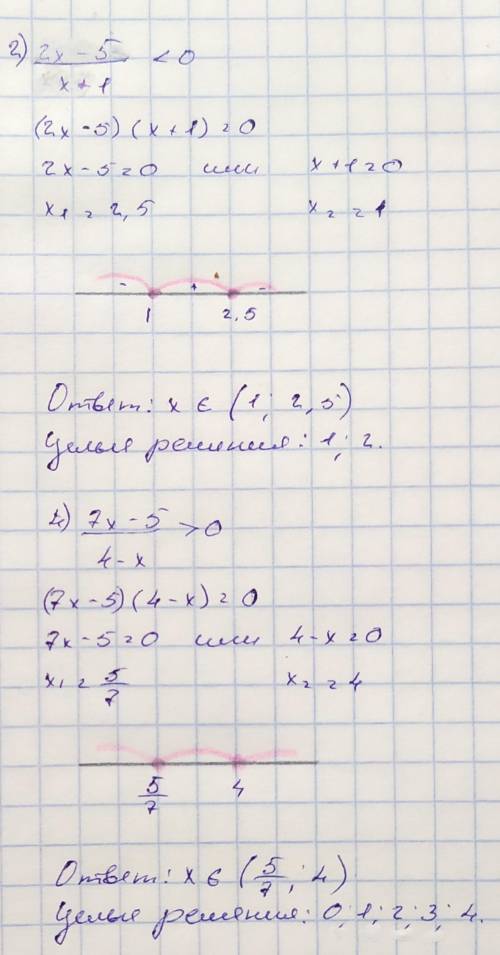 2) (2x - 5)/(x + 1) < 0
(2x - 5) (x + 1) = 0
2x - 5 = 0 или x + 1 = 0
x₁ = 2,5 x₂ = 1
- + -
1 2,5
Ответ: x ∈ (1; 2,5)
Целые решения: 1; 2.
4) (7x - 5)/(4 - x) > 0
(7x - 5) (4 - x) = 0
7x - 5 = 0 или 4 - x = 0
x₁ = 5/7 x₂ = 4
5/7 4
Ответ: x ∈ (5/7; 4)
Целые решения: 0; 1; 2; 3; 4.